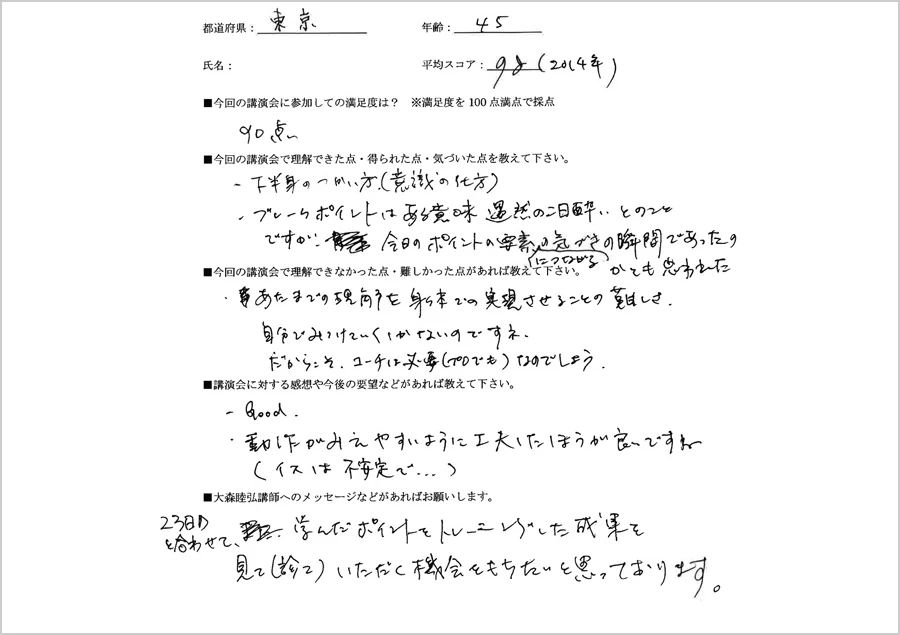 都道府県：東京 年齢：45
氏名： 平均スコア：98(2014年)
■今回の講演会に参加しての満足度は？ ※満足度を100点満点で採点
90点
■今回の講演会で理解できた点・得られた点・気づいた点を教えて下さい。
- 下半身のつかい方.(意識の仕方)
・ブレークポイントはある意味 偶然の二日酔い とのこと
ですが、今日のポイントの要素の気づきの瞬間であったの
(につながる)
かとも思われた
■今回の講演会で理解できなかった点・難しかった点があれば教えて下さい。
・あたまでの理解を身体での実現させることの難しさ.
自分でみつけていくしかないのですネ.
だからこそ、コーチは必要(プロでも)なのでしょう.
■講演会に対する感想や今後の要望などがあれば教えて下さい。
- Good.
・動作がみえやすいように工夫したほうが良いですね
(イスは不安定で...)
■大森睦弘講師へのメッセージなどがあればお願いします。
23日
と合わせて、学んだポイントをトレーニングした成果を
見て(診て)いただく機会をもちたいと思っております。